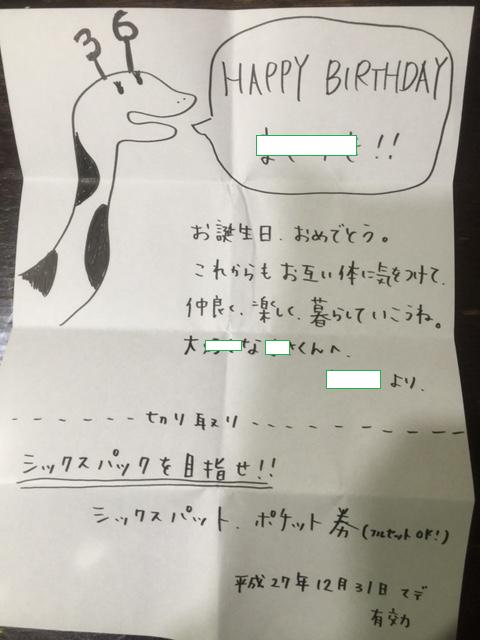 36
HAPPY BIRTHDAY
!!
お誕生日、おめでとう。
これからもお互い体に気をつけて、
仲良く、楽しく、暮らしていこうね。
大 な くんへ、
より、
切り取り
シックスパックを目指せ!!
シックスパット、ポケット券(フルセットOK!)
平成27年12月31日マデ
有効